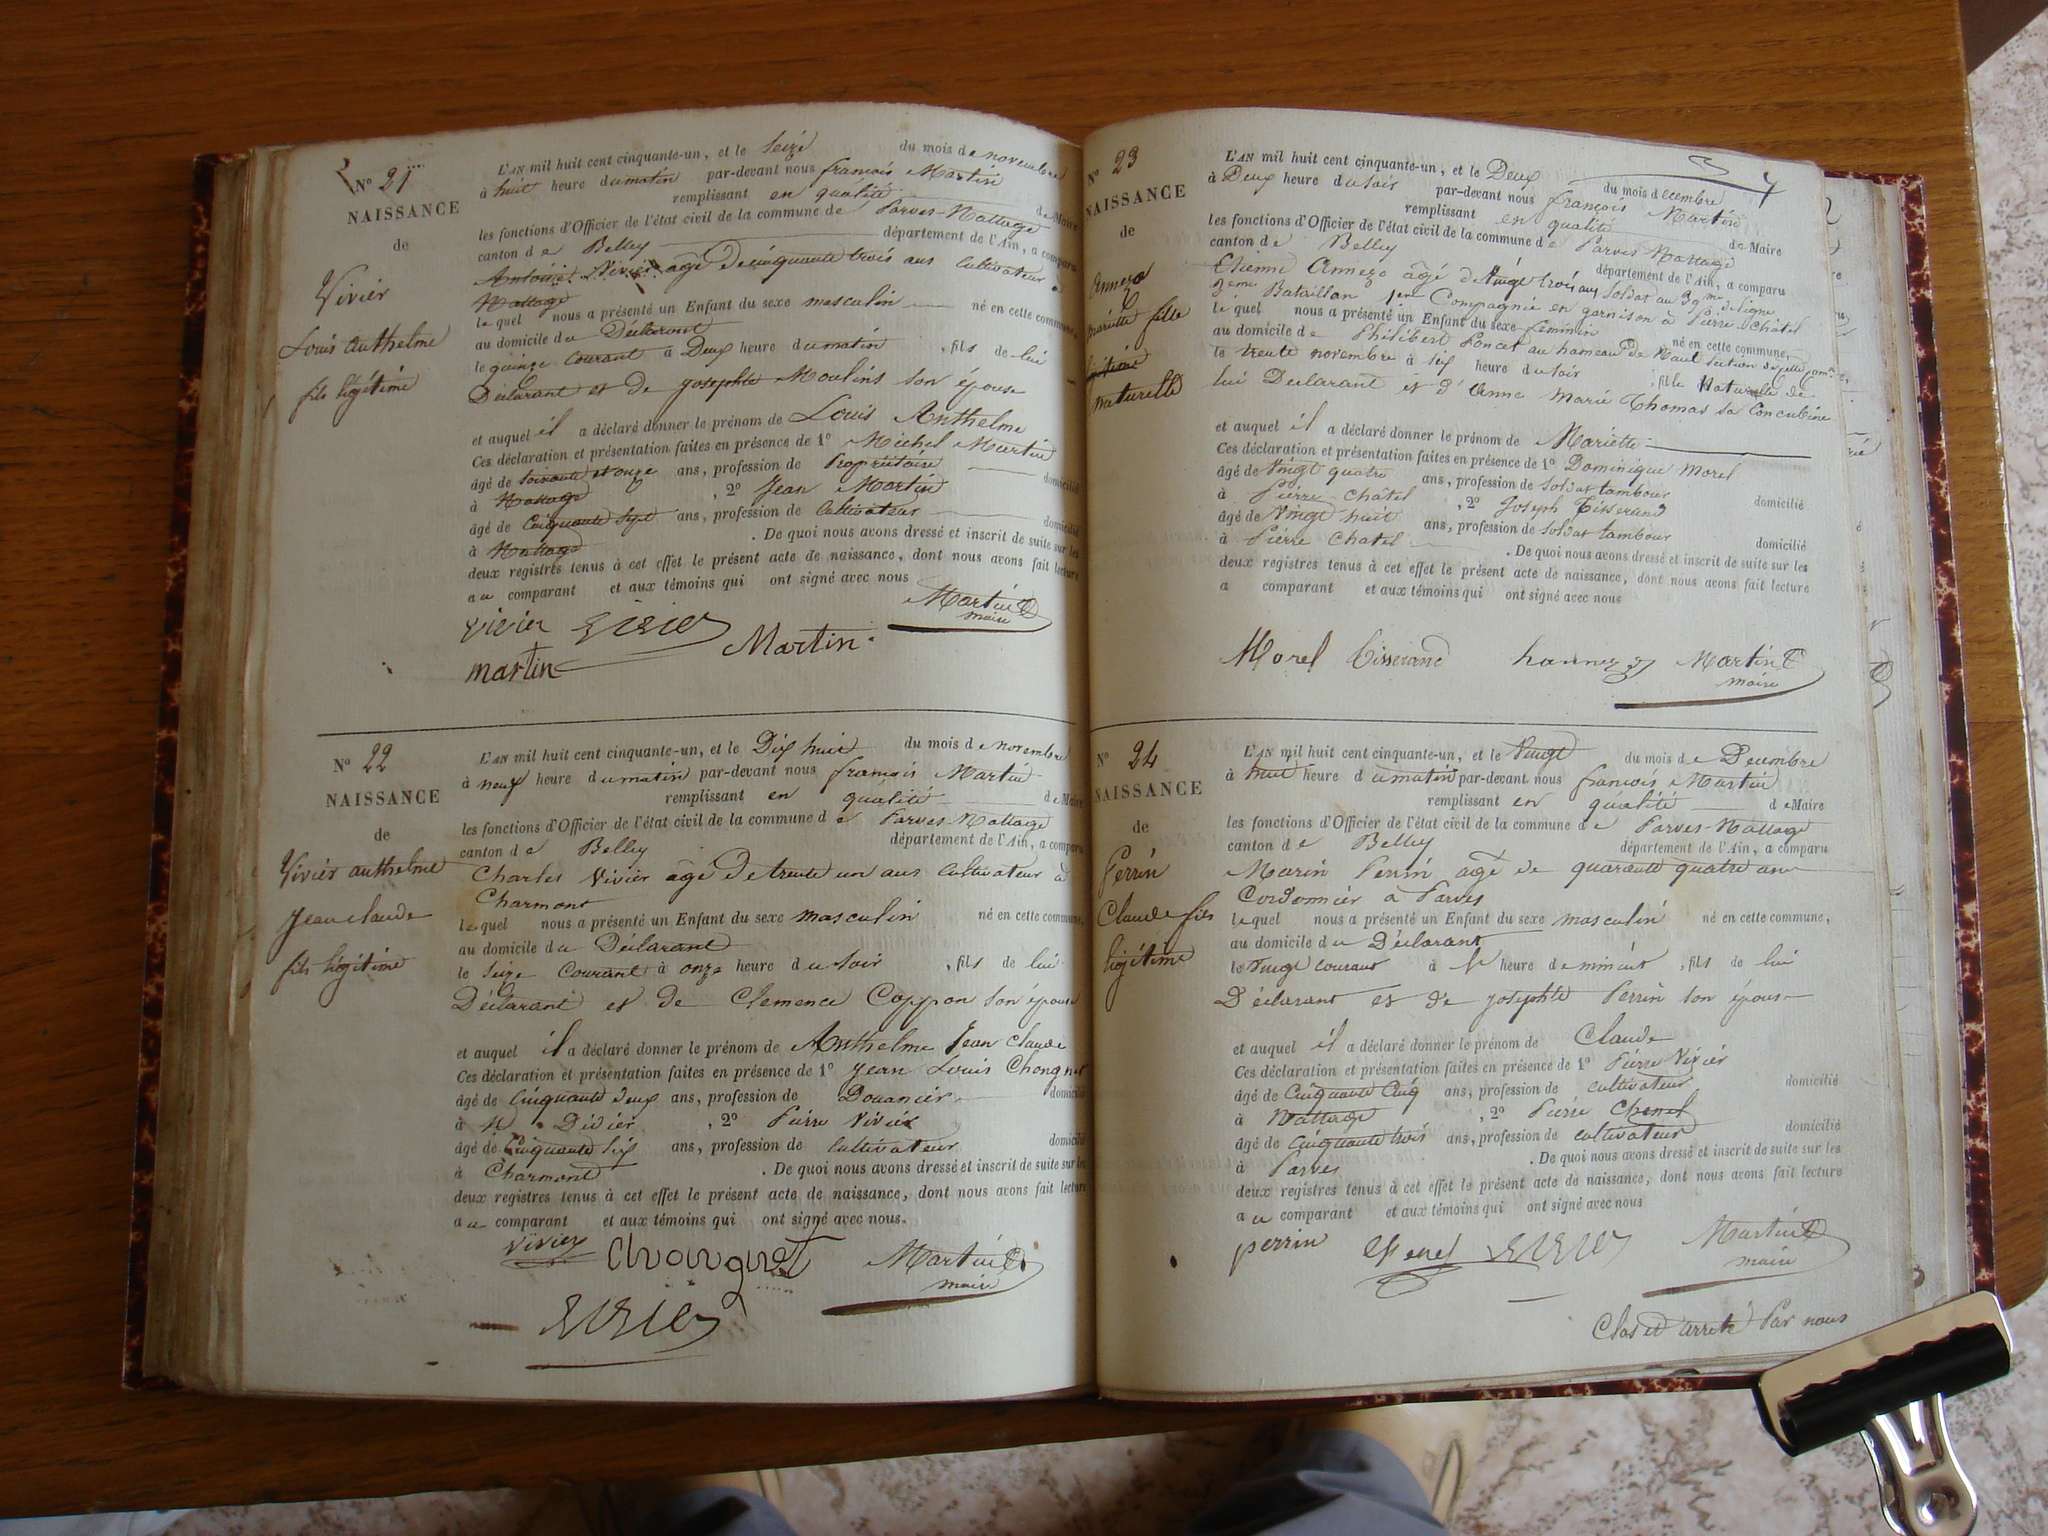 N° 21
NAISSANCE
de
Vivier
Louis Anthelme
fils légitime
L'AN mil huit cent cinquante-un, et le Seize du mois de novembre
à huit heure du matin par-devant nous françois Martin
remplissant en qualité de Maire
les fonctions d'Officier de l'état civil de la commune de Parves-Nattage
canton de Belley département de l'Ain, a comparu
Antoine Vivier âgé de cinquante trois ans Cultivateur à
Nattage
lequel nous a présenté un Enfant du sexe masculin né en cette commune,
au domicile du Déclarant
le quinze courant à Deux heure du matin , fils de lui
Déclarant et de Josephte Moulins son épouse
et auquel il a déclaré donner le prénom de Louis Anthelme
Ces déclaration et présentation faites en présence de 1° Michel Martin
âgé de Soixante et onze ans, profession de Propriétaire domicilié
à Nattage , 2° Jean Martin
âgé de Cinquante Sept ans, profession de Cultivateur domicilié
à Nattage . De quoi nous avons dressé et inscrit de suite sur les
deux registres tenus à cet effet le présent acte de naissance, dont nous avons fait lecture
au comparant et aux témoins qui ont signé avec nous
vivier Vivier Martin
maire
martin Martin
N° 22
NAISSANCE
de
Vivier anthelme
Jean claude
fils légitime
L'AN mil huit cent cinquante-un, et le Dix huit du mois de novembre
à neuf heure du matin par-devant nous françois Martin
remplissant en qualité de Maire
les fonctions d'Officier de l'état civil de la commune de Parves-Nattage
canton de Belley département de l'Ain, a comparu
Charles Vivier âgé de trente un ans Cultivateur à
Charmont
lequel nous a présenté un Enfant du sexe masculin né en cette commune,
au domicile du Déclarant
le Seize Courant à onze heure du soir , fils de lui
Déclarant et de Clemence Coppon son épouse
et auquel il a déclaré donner le prénom de Anthelme Jean Claude
Ces déclaration et présentation faites en présence de 1° Jean Louis Chongnet
âgé de Cinquante deux ans, profession de Douanier domicilié
à N. Divier , 2° Pierre Vivier
âgé de Cinquante Six ans, profession de Cultivateur domicilié
à Charmont . De quoi nous avons dressé et inscrit de suite sur les
deux registres tenus à cet effet le présent acte de naissance, dont nous avons fait lecture
au comparant et aux témoins qui ont signé avec nous.
Vivier Martin
maire
Vivier
N° 23
NAISSANCE
de
Annezo
Mariette fille
légitime
naturelle
L'AN mil huit cent cinquante-un, et le Deux du mois decembre
à Deux heure du soir par-devant nous françois Martin
remplissant en qualité de Maire
les fonctions d'Officier de l'état civil de la commune de Parves Nattage
canton de Belley département de l'Ain, a comparu
Etienne Annezo âgé de Vingt trois ans Soldat au 39me de ligne
2eme Bataillon 1ere Compagnie en garnison à Pierre Châtel
lequel nous a présenté un Enfant du sexe feminin né en cette commune,
au domicile de Philibert Poncet au hameau de
le trente novembre à six heure du soir , fille Naturelle de
lui Déclarant et d'Anne Marie Thomas sa Concubine
et auquel il a déclaré donner le prénom de Mariette
Ces déclaration et présentation faites en présence de 1° Dominique Morel
âgé de Vingt quatre ans, profession de Soldat tambour domicilié
à Pierre Châtel , 2° Joseph Tisserand
âgé de Vingt huit ans, profession de Soldat tambour domicilié
à Pierre Chatel . De quoi nous avons dressé et inscrit de suite sur les
deux registres tenus à cet effet le présent acte de naissance, dont nous avons fait lecture
a comparant et aux témoins qui ont signé avec nous
Morel Tisserand Martin
maire
N° 24
NAISSANCE
de
Perrin
Claude fils
légitime
L'AN mil huit cent cinquante-un, et le Vingt du mois de Décembre
à huit heure du matin par-devant nous françois Martin
remplissant en qualité de Maire
les fonctions d'Officier de l'état civil de la commune de Parves-Nattage
canton de Belley département de l'Ain, a comparu
Marin Perrin âgé de quarante quatre ans
Cordonnier à Parves
lequel nous a présenté un Enfant du sexe masculin né en cette commune,
au domicile du Déclarant
le Vingt courant à heure de minuit , fils de lui
Déclarant et de Josephte Perrin son épouse
et auquel il a déclaré donner le prénom de Claude
Ces déclaration et présentation faites en présence de 1° Pierre Vivier
âgé de Cinquante Cinq ans, profession de Cultivateur domicilié
à Nattage , 2° Pierre Chenel
âgé de Cinquante trois ans, profession de cultivateur domicilié
à Parves . De quoi nous avons dressé et inscrit de suite sur les
deux registres tenus à cet effet le présent acte de naissance, dont nous avons fait lecture
au comparant et aux témoins qui ont signé avec nous
perrin Chenel Vivier Martin
maire
Clos et arreté Par nous